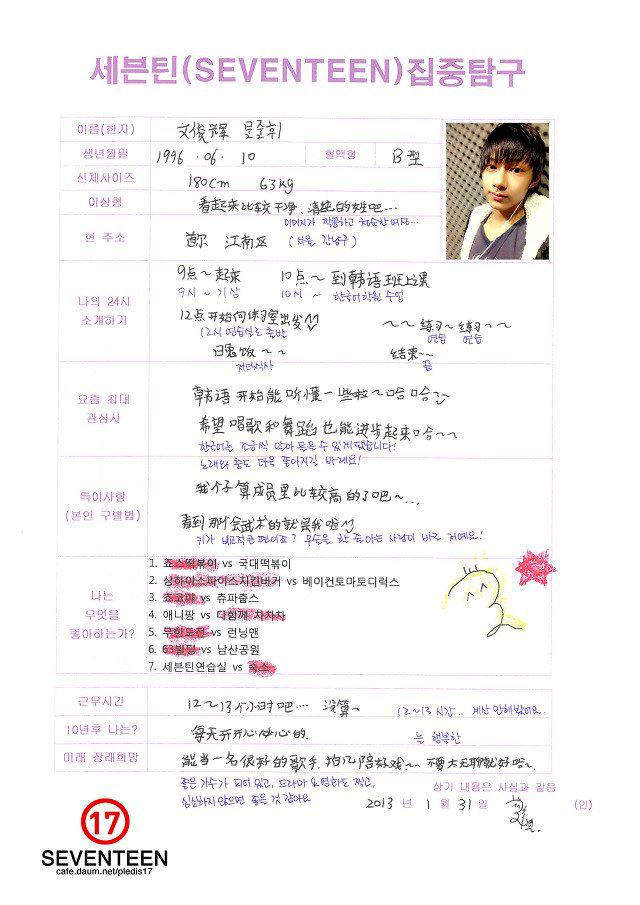 세븐틴(SEVENTEEN)집중탐구
이름(한자) 文俊辉 문준휘
생년월일 1996 . 06 . 10 혈액형 B 型
신체사이즈 180cm 63kg
이상형 看起来比较干净.清纯的女生吧...
이미지가 깔끔하고 청순한 여자...
현 주소 首尔 江南区 (서울 강남구)
나의 24시
소개하기
9点~起来 10点~到韩语班上课
9시 ~ 기상 10시 ~ 한국어학원 수업
12点开始向练习室出发 ~~练习~练习~~
12시 연습실로 출발 연습 연습
晚饭~~ 结束~~
저녁식사 끝
요즘 최대
관심사
韩语开始能听懂一些啦~哈哈
希望唱歌和舞蹈也能进步起来哈~~
한국어를 조금씩 알아 들을 수 있게 됐습니다!
노래와 춤도 더욱 좋아지길 바래요!
특이사항
(본인 구별법)
我个子算成员里比较高的了吧~...
看到那个会武术的就是我啦
키가 비교적 큰 편이죠? 우슈를 할 줄 아는 사람이 바로 저예요!
나는
무엇을
좋아하는가?
1. 죠스떡볶이 vs 국대떡볶이
2. 상하이스파이스치킨버거 vs 베이컨토마토디럭스
3. 초코퍄 vs 츄파춥스
4. 애니팡 vs 다함께 차차차
5. 무한도전 vs 런닝맨
6. 63빌딩 vs 남산공원
7. 세븐틴연습실 vs 숙소
근무시간 12~13个小时吧... 没算~ 12~13시간.. 계산 안해봤어요.
10년후 나는? 每天开开心心的. 늘 행복한
미래 장래희망 能当一名很好的歌手.拍几部好戏~~不要太无聊就好啦~.
좋은 가수가 되어 있고, 드라마 &영화도 찍고,
심심하지 않으면 좋을 것 같아요
상기 내용은 사실과 같음
2013 년 1 월 31 일 (인)
17
SEVENTEEN
cafe.daum.net/pledis17